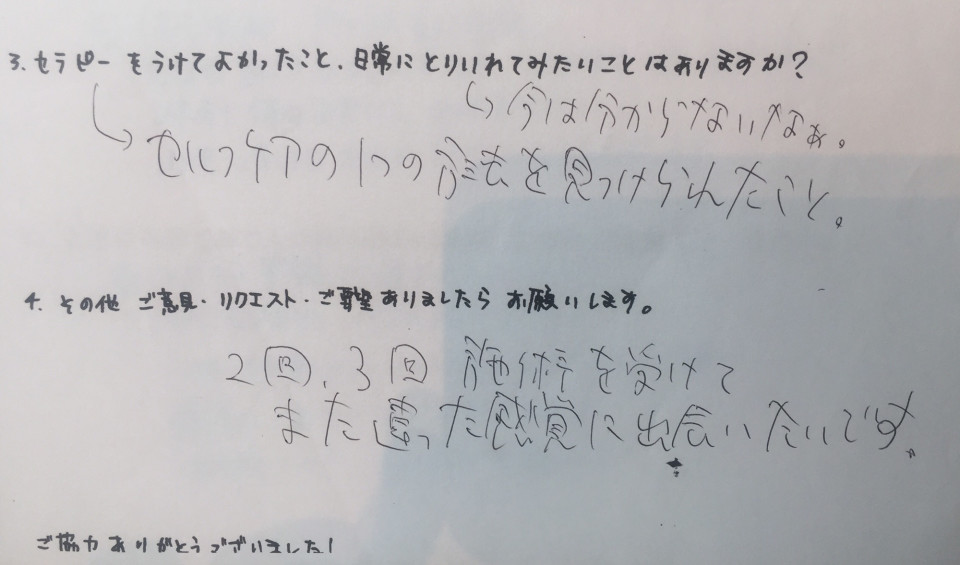 3. セラピーをうけてよかったこと、日常にとりいれてみたいことはありますか?
今は分からないなぁ。
セルフケアの1つの方法を見つけられたこと。
4. その他 ご意見・リクエスト・ご要望ありましたら お願いします。
2回、3回 施術を受けて
また違った感覚に出会いたいです。
ご協力ありがとうございました!